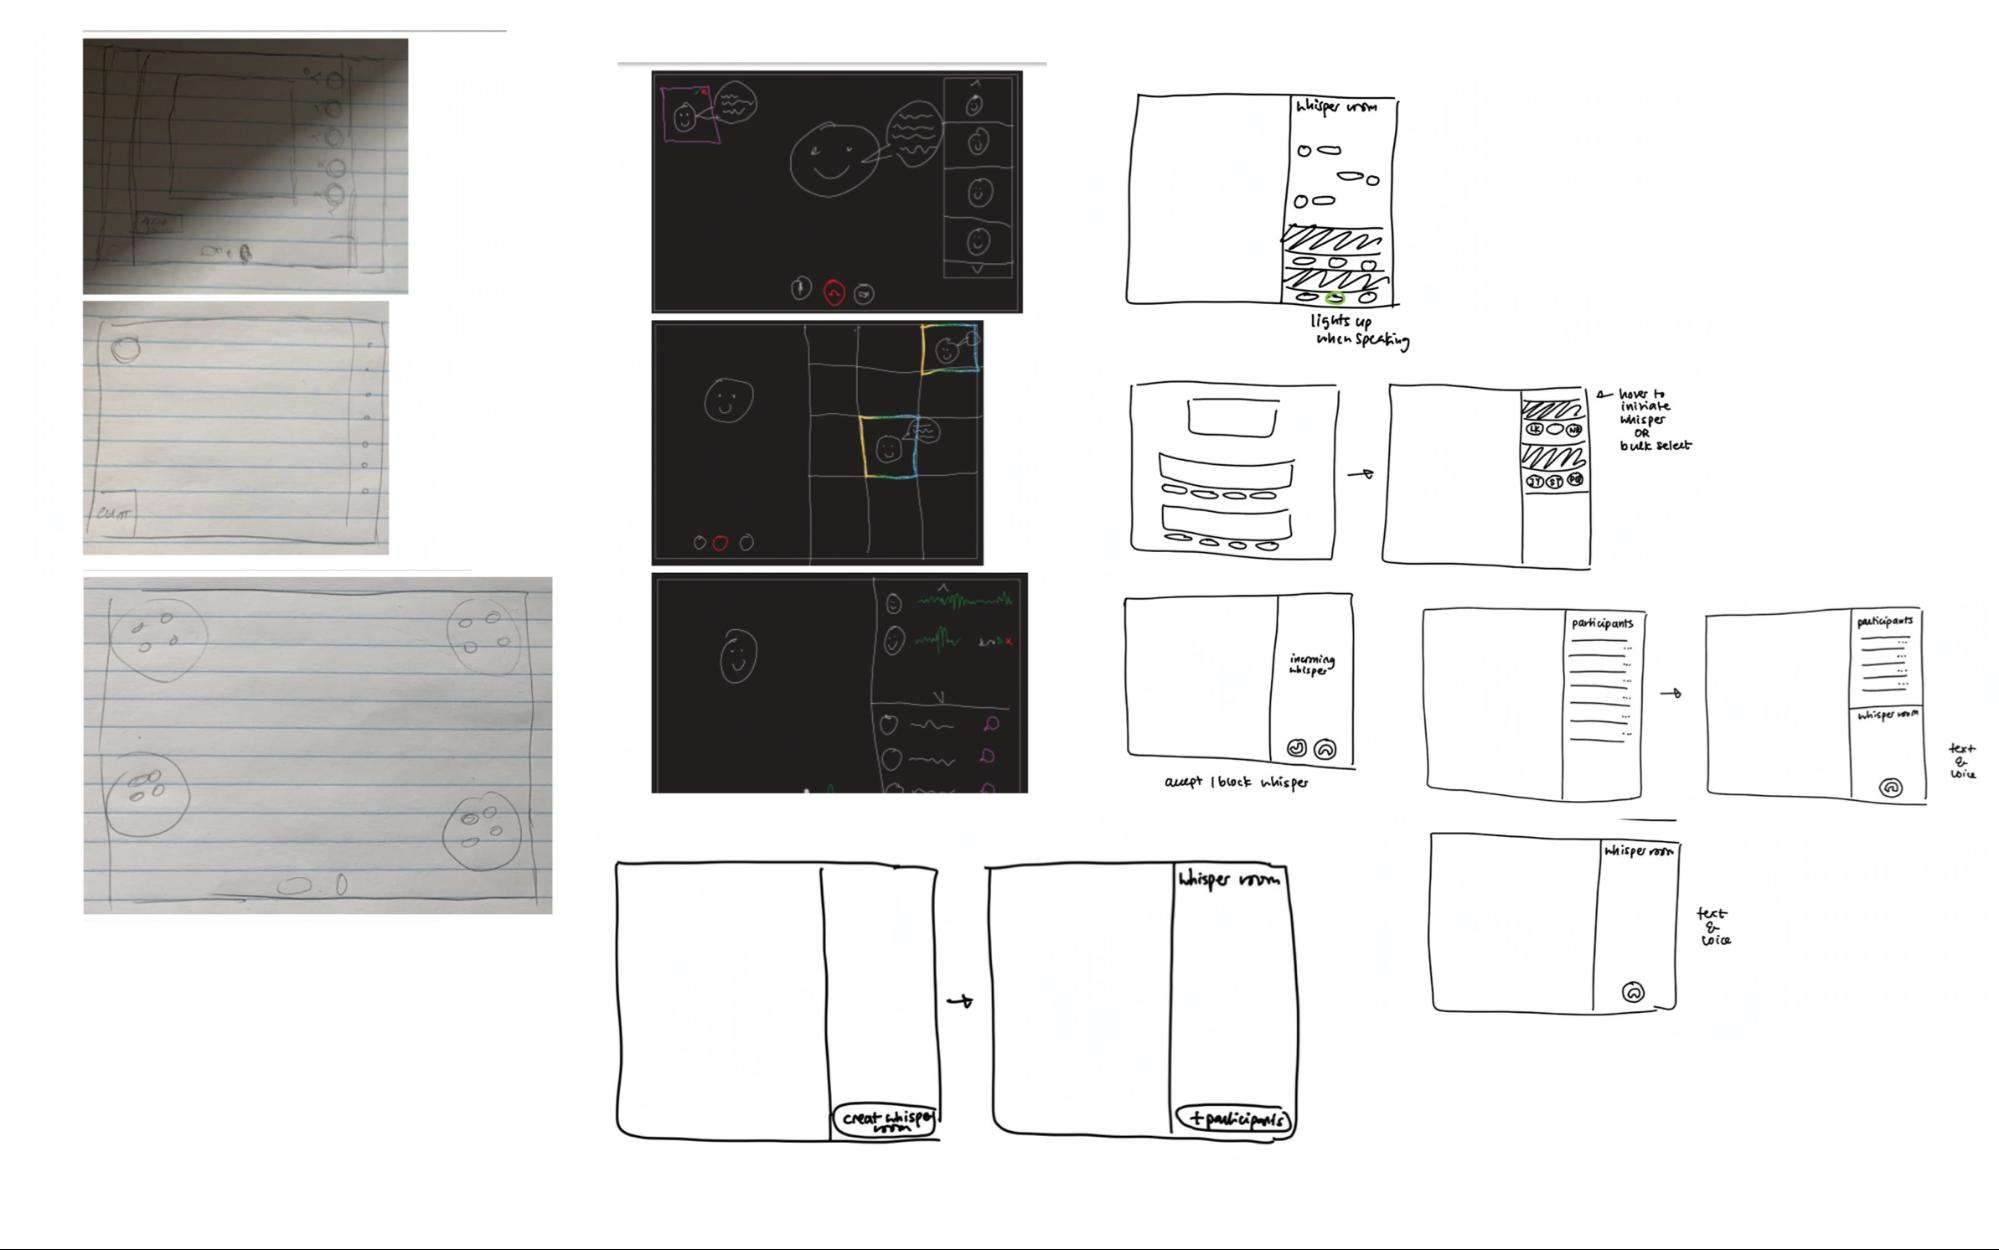 CHAT
whisper room
lights up
when speaking
hover to
initiate
whisper
OR
bulk select
LK
NR
JT
ST
PQ
incoming
whisper
accept / block whisper
participants
participants
whisper room
text
&
voice
whisper room
text
&
voice
creat whisper
room
whisper room
+participants